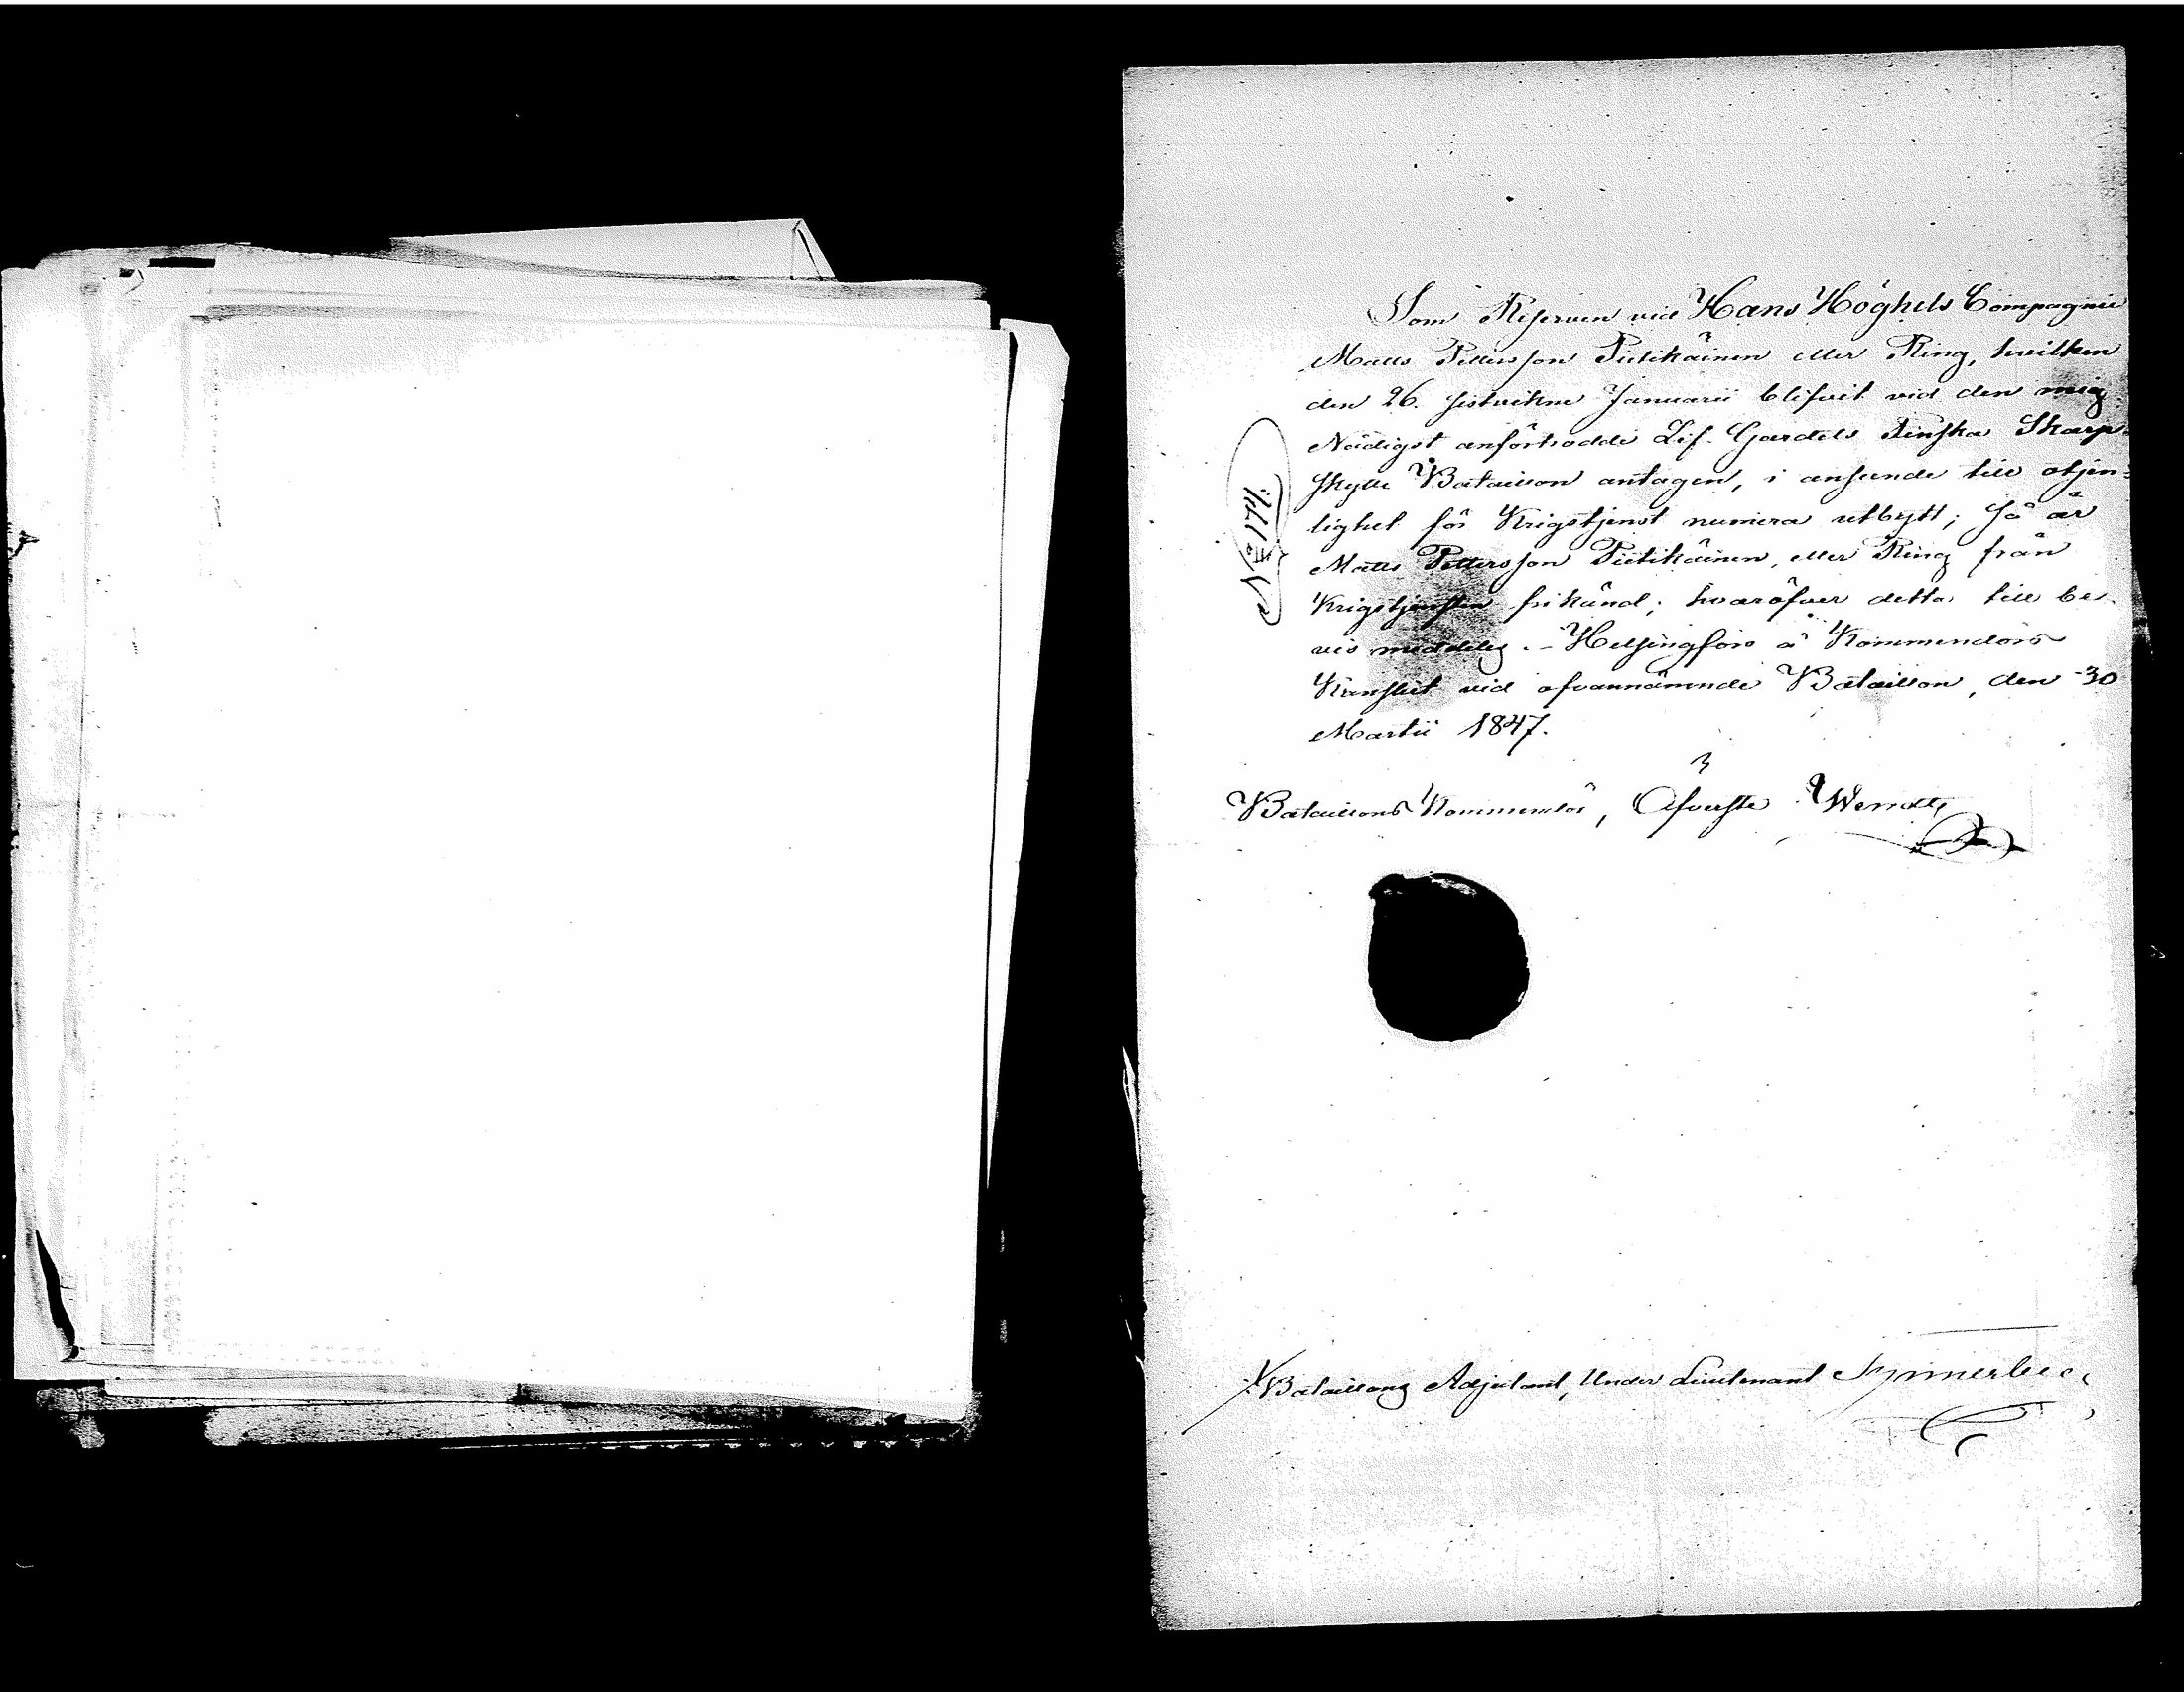 Som Reserven vid Hans Höghets Compagnie
Matts Pettersson Pietikäinen eller Ring, hvilken
den 26. sistvikne Januarii blifvit vid den mig
Nådigst anförtrodde Lif-Gardets Finska Skarp-
skytte Bataillon antagen, i anseende till otjen-
lighet för Krigstjenst numera utbytt; Så är
Matts Pettersson Pietikäinen, eller Ring från
Krigstjensten frikänd; hvaröfver detta till be-
vis meddelas. - Helsingfors å Kommendörs
Kansliet vid ofvannämnde Bataillon, den 30
Martii 1847.
Bataillons Kommendör, Öfverste Wendt
Bataillons Adjutant, Under Lieutenant